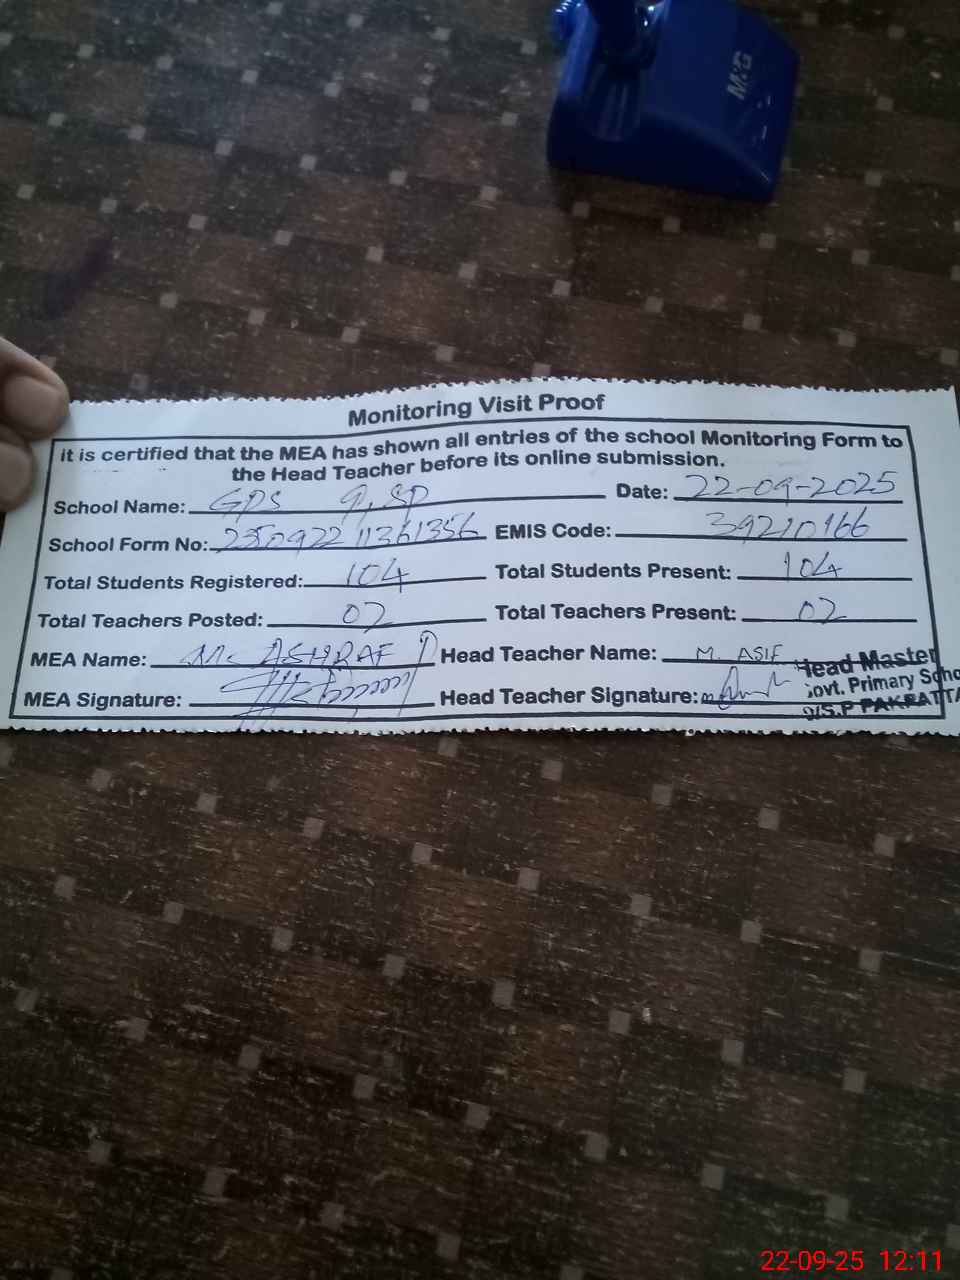 M&G
Monitoring Visit Proof
it is certified that the MEA has shown all entries of the school Monitoring Form to
the Head Teacher before its online submission.
School Name: GPS 9, SP Date: 22-09-2025
School Form No: EMIS Code: 39210166
Total Students Registered: 104 Total Students Present: 104
Total Teachers Posted: 02 Total Teachers Present: 02
MEA Name: ASHRAF Head Teacher Name: M. ASIF
MEA Signature: Head Teacher Signature:
Head Master
Govt. Primary Scho
9/S.P PAKPATTA
22-09-25 12:11